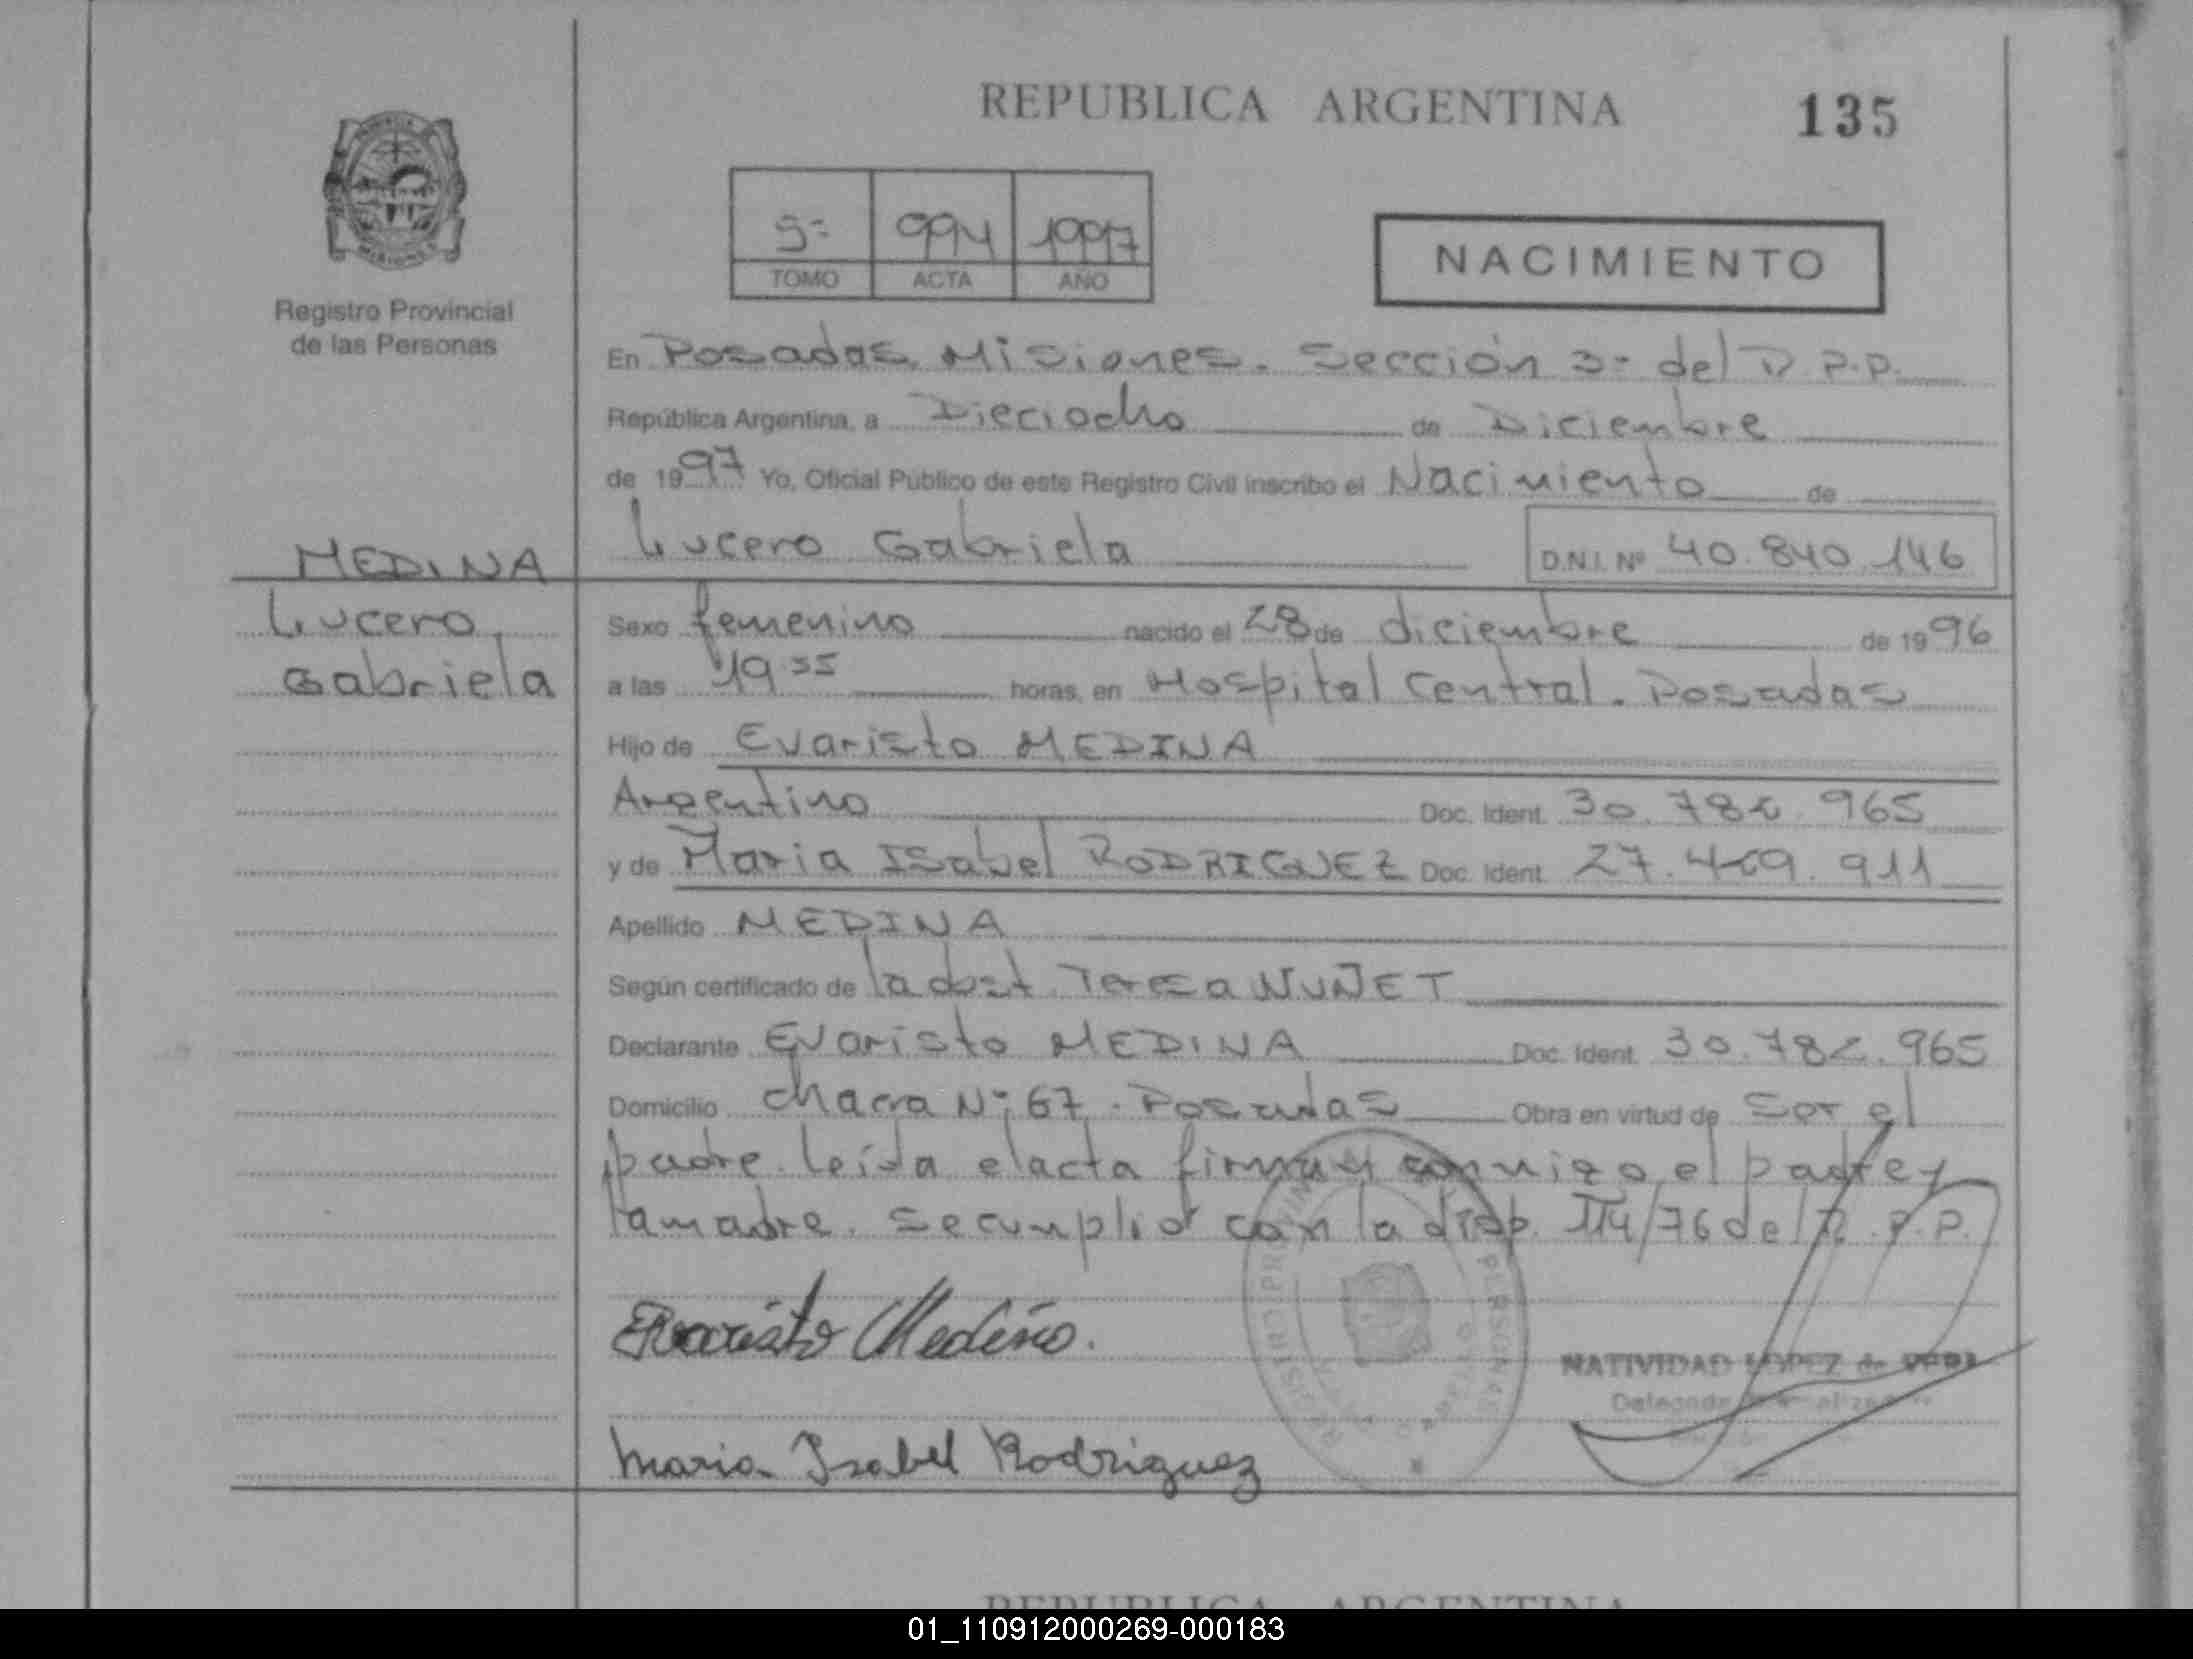 REPUBLICA ARGENTINA
135
5= 994 1997
TOMO ACTA AÑO
NACIMIENTO
Registro Provincial
de las Personas
En Posadas, Misiones. Sección 3= del R.P.P.
República Argentina, a Dieciocho de Diciembre
de 1997 Yo, Oficial Público de este Registro Civil inscribo el Nacimiento de
Lucero Gabriela D.N.I. Nº 40.840.146
MEDINA
Lucero,
Gabriela
Sexo femenino nacido el 28 de diciembre de 1996
a las 19.55 horas, en Hospital Central. Posadas
Hijo de Evaristo MEDINA
Argentino Doc. Ident. 30.782.965
y de Maria Isabel RODRIGUEZ Doc. Ident. 27.469.911
Apellido MEDINA
Según certificado de la obst. Teresa NUÑET
Declarante Evaristo MEDINA Doc. Ident. 30.782.965
Domicilio chacra Nº 67. Posadas Obra en virtud de ser el
padre. Leída el acta firman conmigo el padre y
la madre. Se cumplió con la disp. 114/76 del R.P.P.
Evaristo Medina.
NATIVIDAD LOPEZ de
Maria Isabel Rodriguez
REPUBLICA ARGENTINA
01_110912000269-000183